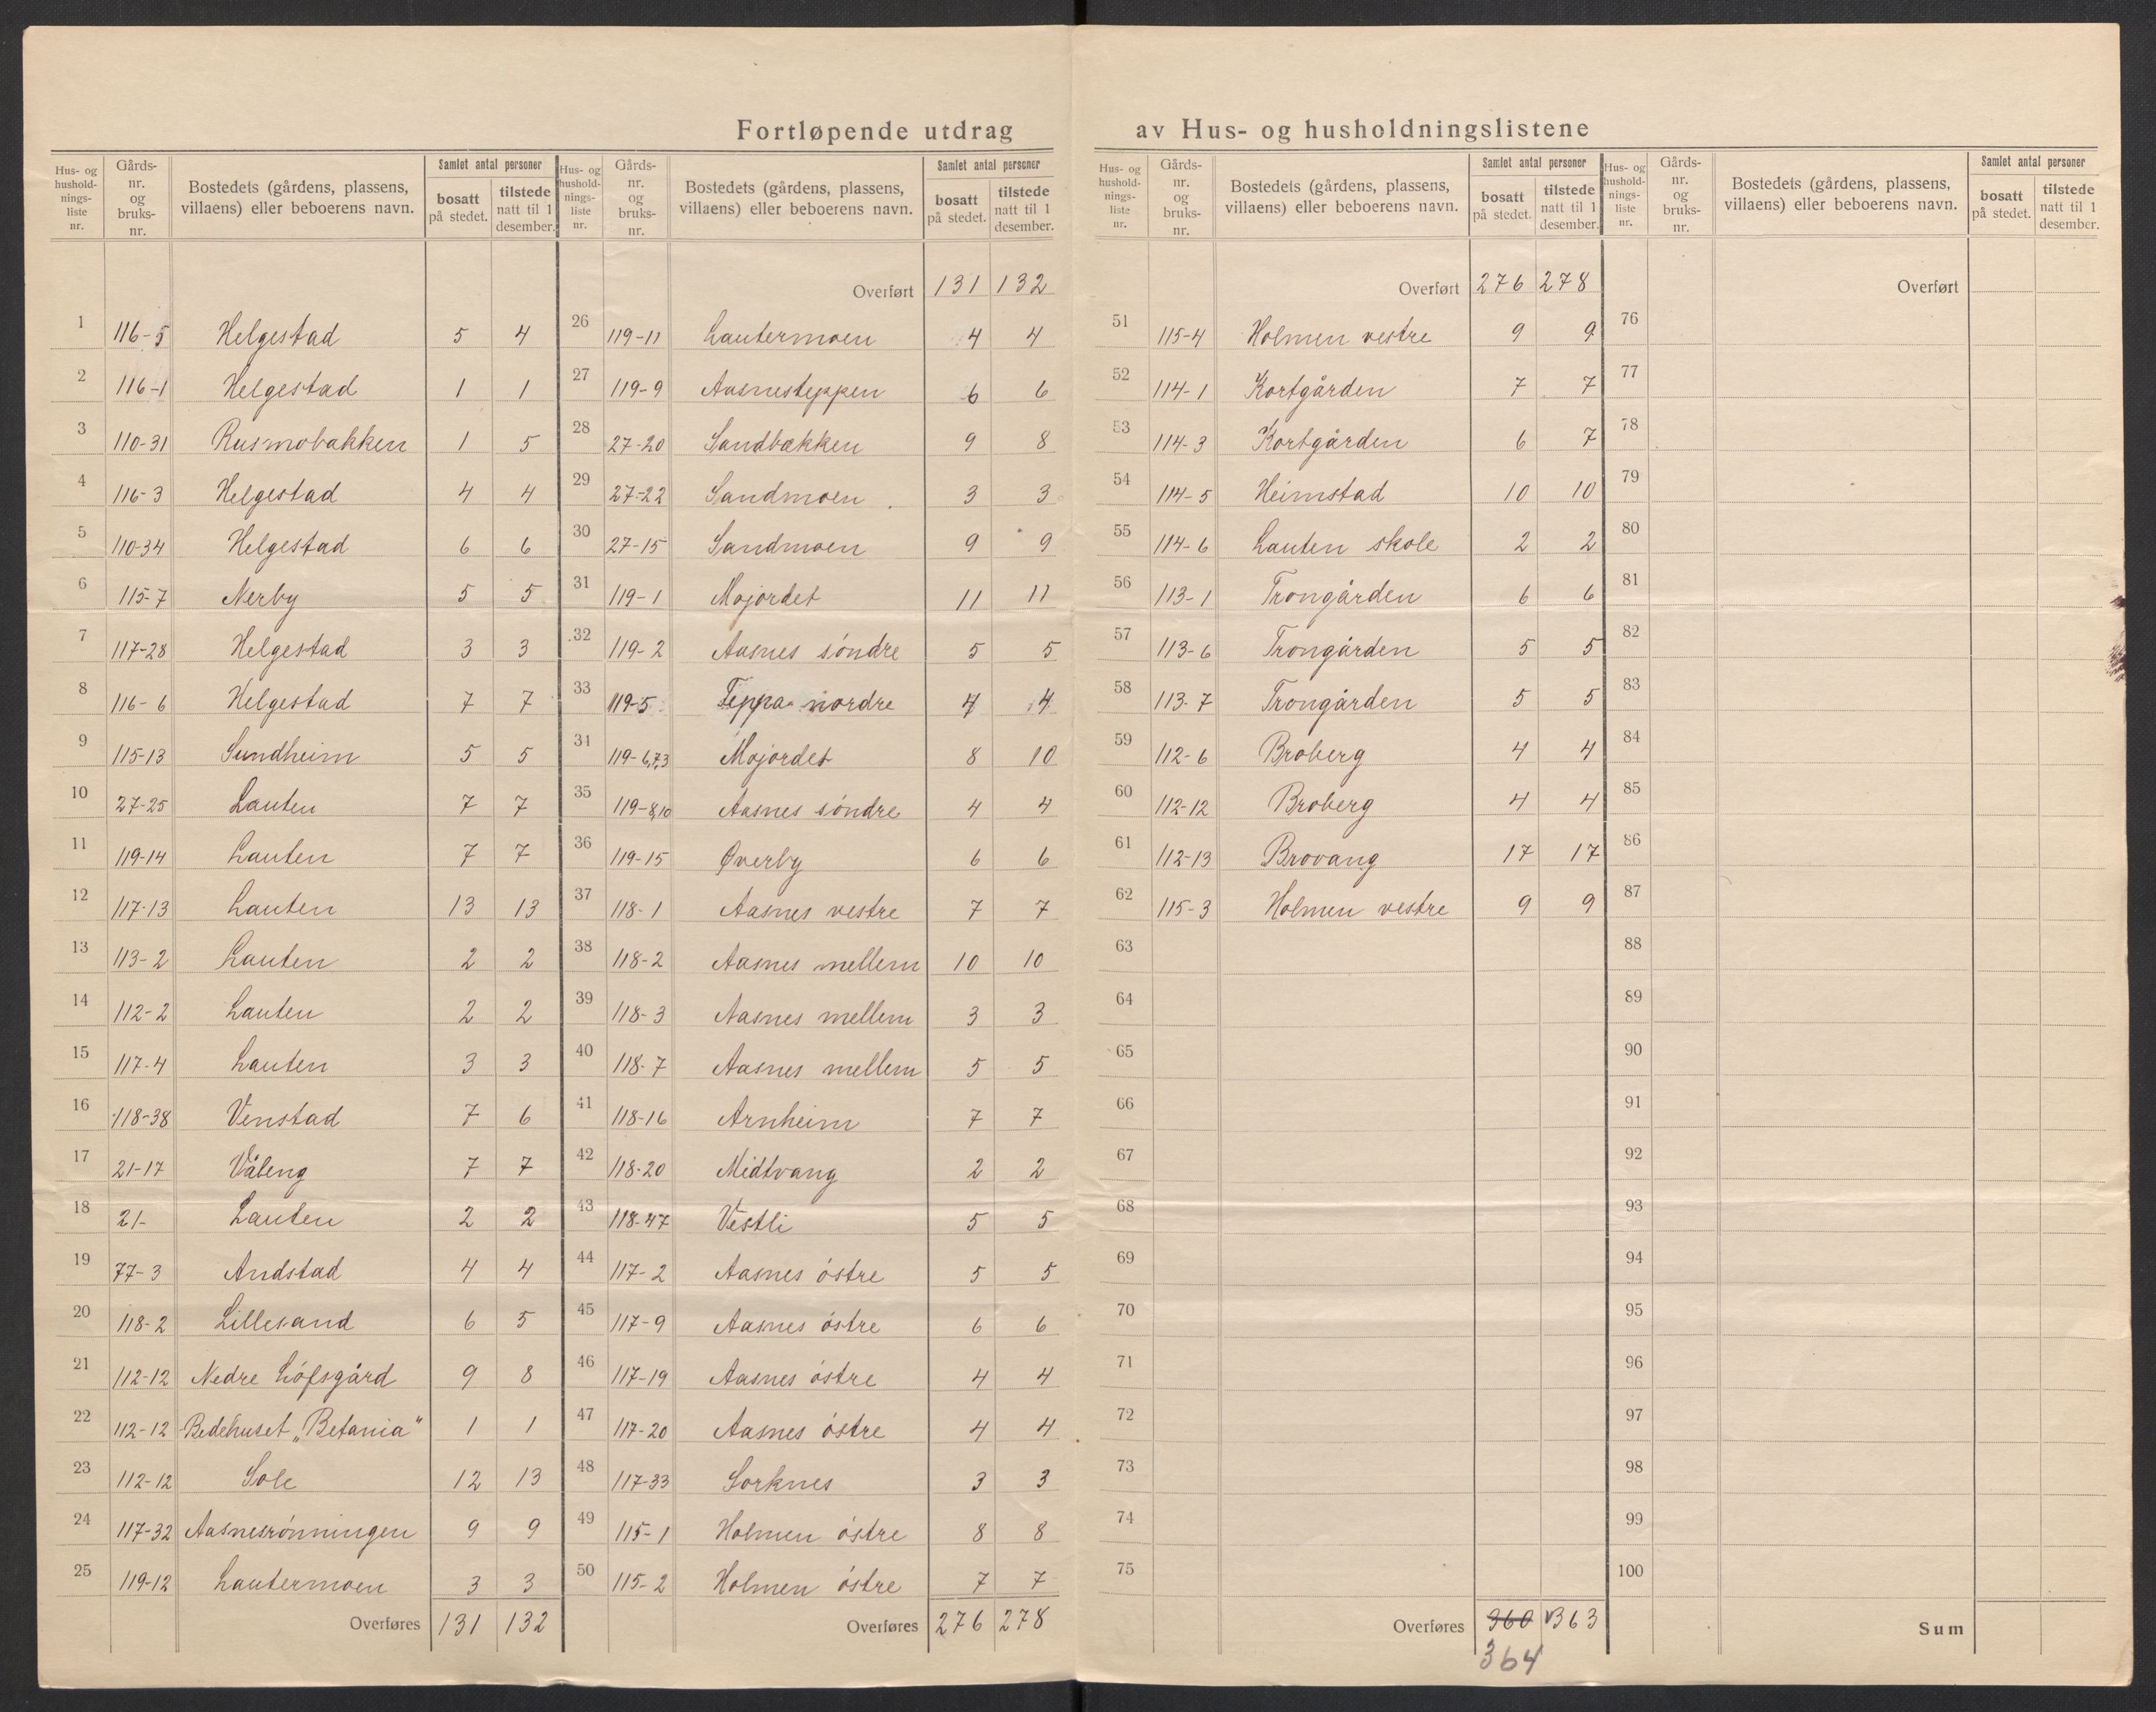 Fortløpende utdrag av Hus- og husholdningslistene
Hus- og hushold- nings- liste nr. | Gårds- nr. og bruks- nr. | Bostedets (gårdens, plassens, villaens) eller beboerens navn. | Samlet antal personer | bosatt på stedet. | tilstede natt til 1 desember.
1 116-5 Helgestad 5 4
2 116-1 Helgestad 1 1
3 110-31 Rusmobakken 1 5
4 116-3 Helgestad 4 4
5 110-34 Helgestad 6 6
6 115-7 Nerby 5 5
7 117-28 Helgestad 3 3
8 116-6 Helgestad 7 7
9 115-13 Sundheim 5 5
10 27-25 Lauten 7 7
11 119-14 Lauten 7 7
12 117-13 Lauten 13 13
13 113-2 Lauten 2 2
14 112-2 Lauten 2 2
15 117-4 Lauten 3 3
16 118-38 Venstad 7 6
17 21-17 Våleng 7 7
18 21- Lauten 2 2
19 77-3 Andstad 4 4
20 118-2 Lillesand 6 5
21 112-12 Nedre Löfsgård 9 8
22 112-12 Bedehuset „Betania" 1 1
23 112-12 Sole 12 13
24 117-32 Aasnesrönningen 9 9
25 119-12 Lautermoen 3 3
Overføres 131 132
Hus- og hushold- nings- liste nr. | Gårds- nr. og bruks- nr. | Bostedets (gårdens, plassens, villaens) eller beboerens navn. | Samlet antal personer | bosatt på stedet. | tilstede natt til 1 desember.
Overført 131 132
26 119-11 Lautermoen 4 4
27 119-9 Aasnesteppen 6 6
28 27-20 Sandbakken 9 8
29 27-22 Sandmoen 3 3
30 27-15 Sandmoen 9 9
31 119-1 Mojordet 11 11
32 119-2 Aasnes söndre 5 5
33 119-5 Teppa nordre 4 4
34 119-6,7,3 Mojordet 8 10
35 119-8,10 Aasnes söndre 4 4
36 119-15 Øverby 6 6
37 118-1 Aasnes vestre 7 7
38 118-2 Aasnes mellem 10 10
39 118-3 Aasnes mellem 3 3
40 118-7 Aasnes mellem 5 5
41 118-16 Arnheim 7 7
42 118-20 Midtvang 2 2
43 118-47 Vestli 5 5
44 117-2 Aasnes östre 5 5
45 117-9 Aasnes östre 6 6
46 117-19 Aasnes östre 4 4
47 117-20 Aasnes östre 4 4
48 117-33 Sorknes 3 3
49 115-1 Holmen östre 8 8
50 115-2 Holmen östre 7 7
Overføres 276 278
Hus- og hushold- nings- liste nr. | Gårds- nr. og bruks- nr. | Bostedets (gårdens, plassens, villaens) eller beboerens navn. | Samlet antal personer | bosatt på stedet. | tilstede natt til 1 desember.
Overført 276 278
51 115-4 Holmen vestre 9 9
52 114-1 Kortgården 7 7
53 114-3 Kortgården 6 7
54 114-5 Heimstad 10 10
55 114-6 Lauten skole 2 2
56 113-1 Trongården 6 6
57 113-6 Trongården 5 5
58 113-7 Trongården 5 5
59 112-6 Broberg 4 4
60 112-12 Broberg 4 4
61 112-13 Brovang 17 17
62 115-3 Holmen vestre 9 9
63
64
65
66
67
68
69
70
71
72
73
74
75
Overføres 360 363
364
Hus- og hushold- nings- liste nr. | Gårds- nr. og bruks- nr. | Bostedets (gårdens, plassens, villaens) eller beboerens navn. | Samlet antal personer | bosatt på stedet. | tilstede natt til 1 desember.
Overført
76
77
78
79
80
81
82
83
84
85
86
87
88
89
90
91
92
93
94
95
96
97
98
99
100
Sum